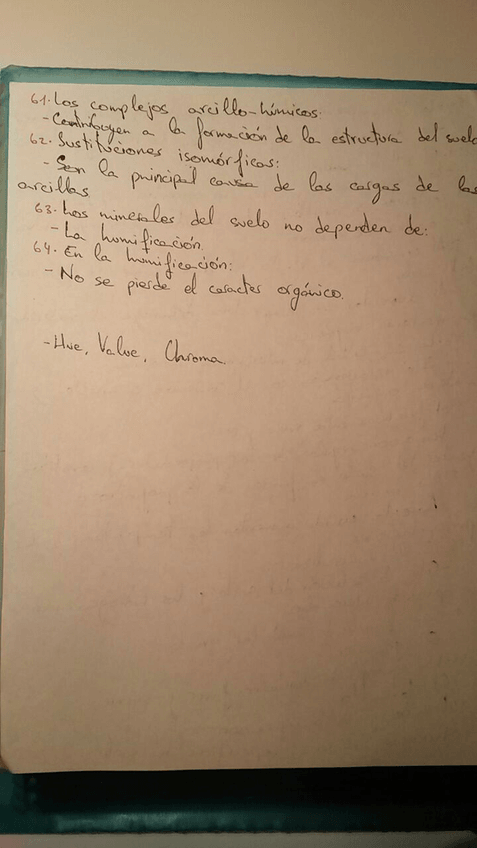 61. Los complejos arcillo-húmicos:
- Contribuyen a la formación de la estructura del suelo
62. Sustituciones isomórficas:
- Son la principal causa de las cargas de las
arcillas
63. Los minerales del suelo no dependen de:
- La humificación
64. En la humificación:
- No se pierde el caracter orgánico.
- Hue, Value, Chroma.